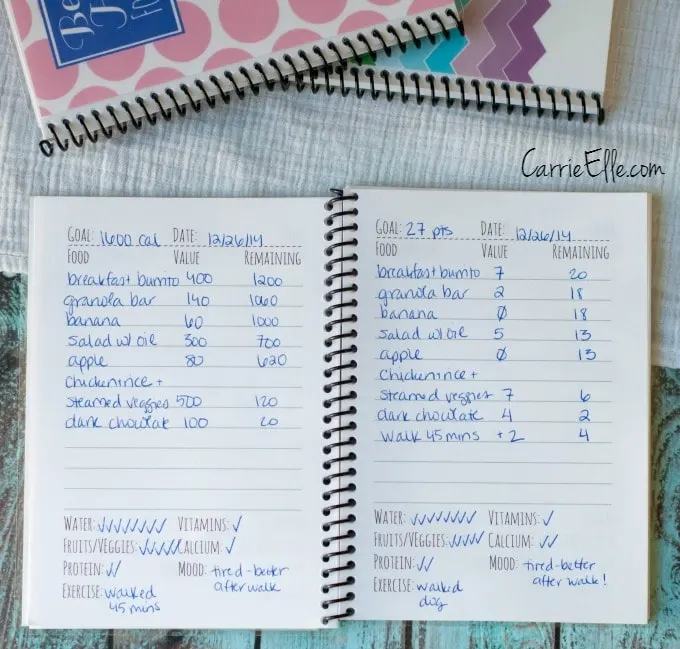 Be
F
Fo
CarrieElle.com
GOAL: 1600 cal DATE: 12/26/14
FOOD VALUE REMAINING
breakfast burrito 400 1200
granola bar 140 1060
banana 60 1000
salad w/ oil 300 700
apple 80 620
chicken rice +
steamed veggies 500 120
dark chocolate 100 20
WATER: ✓✓✓✓✓✓✓✓ VITAMINS: ✓
FRUITS/VEGGIES: ✓✓✓✓ CALCIUM: ✓
PROTEIN: ✓✓ MOOD: tired-better
after walk
EXERCISE: walked
45 mins
GOAL: 27 pts DATE: 12/26/14
FOOD VALUE REMAINING
breakfast burrito 7 20
granola bar 2 18
banana Ø 18
salad w/ oil 5 13
apple Ø 13
chicken rice +
steamed veggies 7 6
dark chocolate 4 2
walk 45 mins +2 4
WATER: ✓✓✓✓✓✓✓ VITAMINS: ✓
FRUITS/VEGGIES: ✓✓✓✓ CALCIUM: ✓✓
PROTEIN: ✓✓ MOOD: tired-better
after walk!
EXERCISE: walked
dog